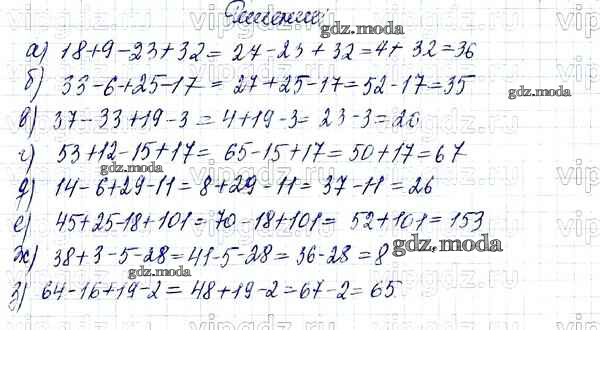 Решение:
а) 18+9-23+32= 27-23+32=4+32=36
б) 33-6+25-17= 27+25-17=52-17=35
в) 37-33+19-3=4+19-3=23-3=20
г) 53+12-15+17= 65-15+17=50+17=67
д) 14-6+29-11=8+29-11=37-11=26
е) 45+25-18+101=70-18+101= 52+101=153
ж) 38+3-5-28=41-5-28=36-28=8
з) 64-16+19-2=48+19-2=67-2=65
gdz.moda
gdz.moda
gdz.moda
gdz.moda
gdz.moda
vipgdz.ru